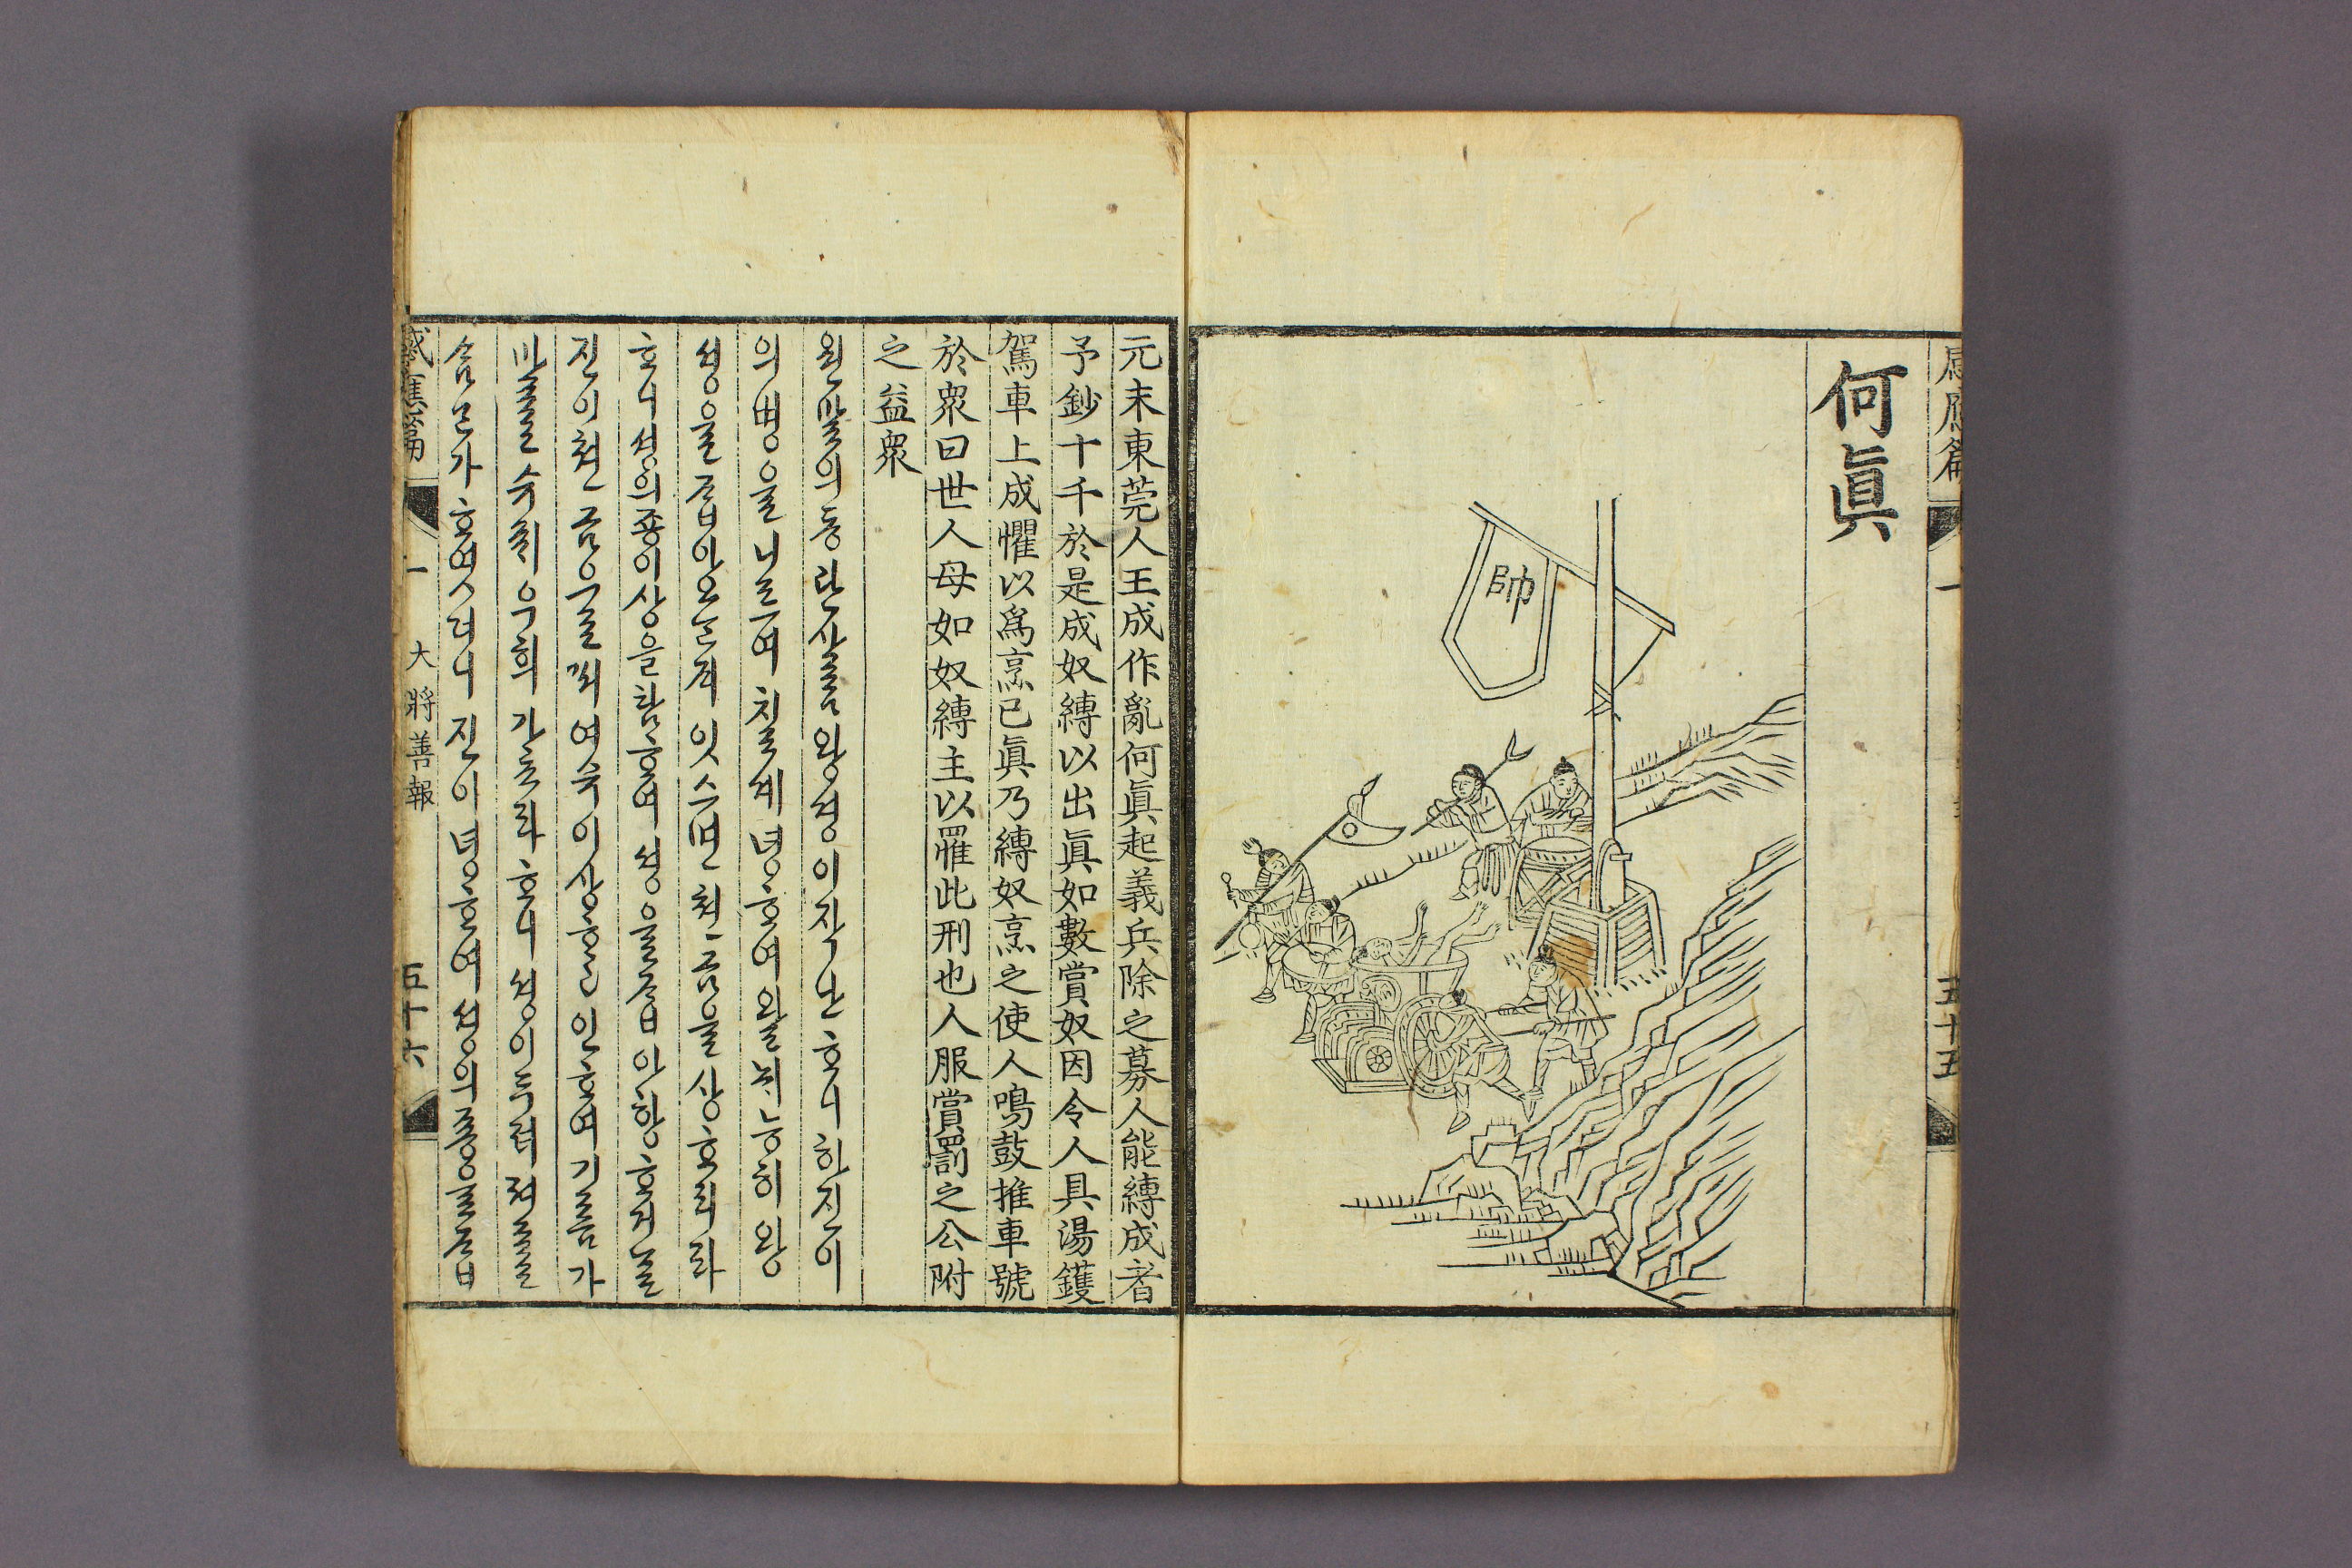 感應篇
一
五十五
何眞
帥
元末東莞人王成作亂何眞起義兵除之募人能縛成者
予鈔十千於是成奴縛以出眞如數賞奴因令人具湯鑊
駕車上成懼以爲烹已眞乃縛奴烹之使人鳴鼓推車號
於衆曰世人毋如奴縛主以罹此刑也人服賞罰之公附
之益衆
원말의동관사ᄅᆞᆷ왕셩이쟉난ᄒᆞ니하진이
의병을니르여치ᄅᆞᆯᄉᆡ녕ᄒᆞ여왈뉘능히왕
셩을ᄌᆞᆸ아오ᄂᆞᆫ쟤잇스면쳔금을상ᄒᆞ리라
ᄒᆞ니셩의죵이상을탐ᄒᆞ여셩을ᄌᆞᆸ아항ᄒᆞ거ᄂᆞᆯ
진이쳔금으로ᄡᅥ여수이상ᄒᆞ고인ᄒᆞ여기ᄅᆞᆷ가
마ᄅᆞᆯ수ᄅᆡ우희가ᄒᆞ라ᄒᆞ니셩이두려져ᄅᆞᆯ
ᄉᆞᆱᄂᆞᆫ가ᄒᆞ엿더니진이녕ᄒᆞ여셩의죵을ᄌᆞᆸ
感應篇
一
大將善報
五十六